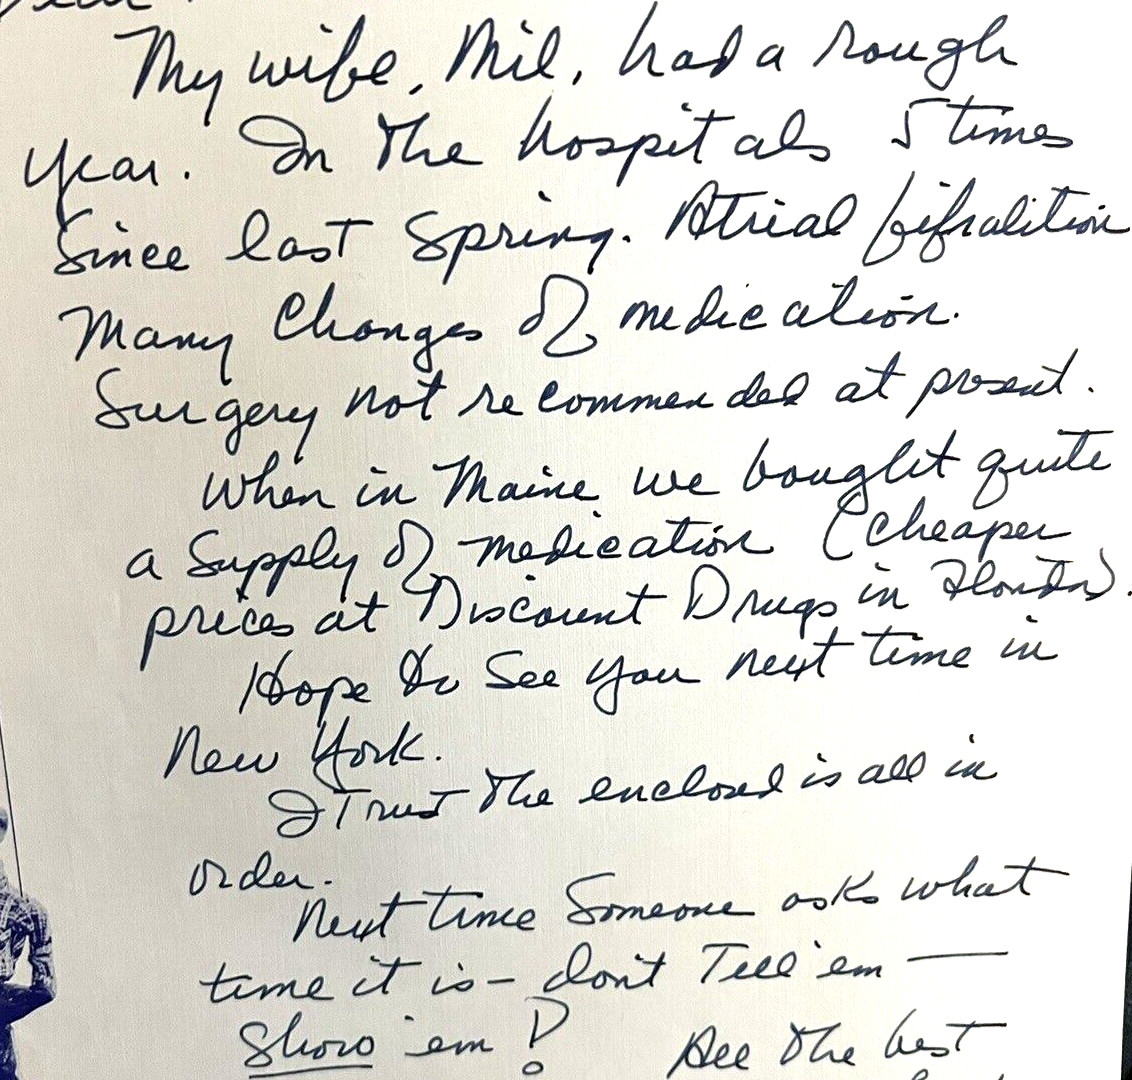 Dear
My wife, Mil, had a rough
year. In the hospitals 5 times
Since last Spring. Atrial fifralition
Many Changes of medication.
Surgery not recommended at present.
When in Maine we bought quite
a Supply of medication (cheaper
prices at Discount Drugs in Florida).
Hope to See you next time in
New York.
I Trust the enclosed is all in
order.
Next time Someone asks what
time it is - don't Tell 'em —
Show 'em !
All the best